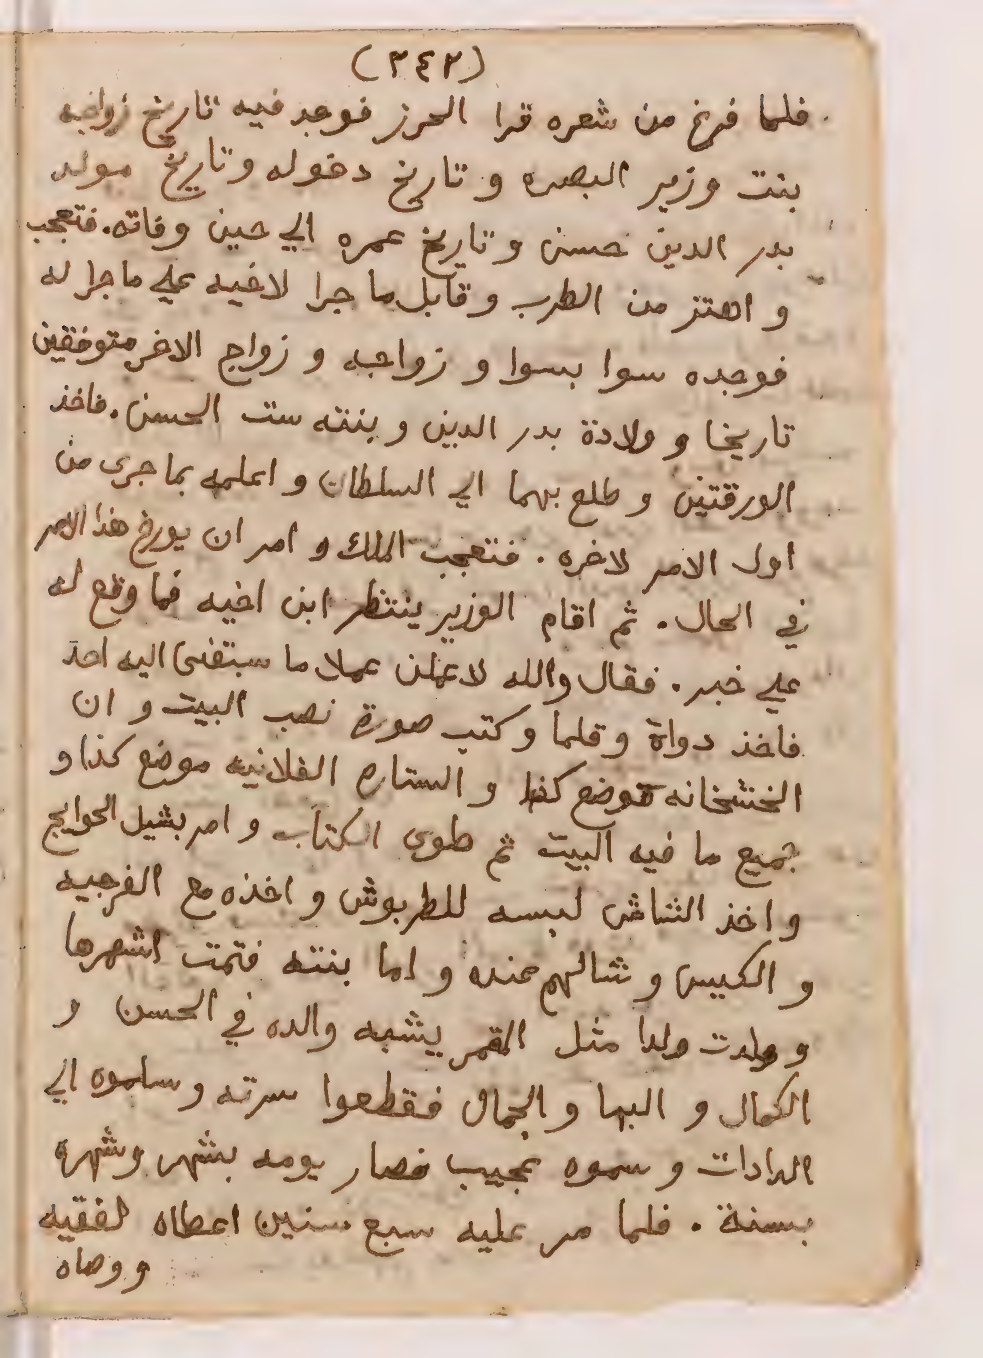 (٣٤٢)
فلما فرغ من شعره قرا الحرز فوجد فيه تاريخ زواجه
بنت وزير البصره و تاريخ دخوله و تاريخ مولد
بدر الدين حسن و تاريخ عمره الي حين وفاته. فتعجب
و اهتز من الطرب و قابل ما جرا لاخيه علي ما جرا له
فوجده سوا بسوا و زواجه و زواج الاخر متوفقين
تاريخا و ولادة بدر الدين و بنته ست الحسن. فاخذ
الورقتين و طلع بهما الي السلطان و اعلمه بما جرى من
اول الامر لاخره. فتعجب الملك و امر ان يورخ هذا الامر
في الحال. ثم اقام الوزير ينتظر ابن اخيه فما وقع له
علي خبر. فقال والله لاعملن عملا ما سبقنى اليه احد
فاخذ دواة و قلما و كتب صورة نصب البيت و ان
الخشخانه موضع كذا و الستاره الفلانيه موضع كذا و
جميع ما فيه البيت ثم طوى الكتاب و امر بشيل الحوايج
و اخذ الشاش لبسه للطربوش و اخذه مع الفرجيه
و الكيس و شالهم عنده و اما بنته فتمت اشهرها
و ولدت ولدا مثل القمر يشبه والده في الحسن و
الكمال و البها و الجمال فقطعوا سرته و سلموه الي
الدادات و سموه عجيب فصار يومه بشهر وشهره
بسنة. فلما مر عليه سبع سنين اعطاه لفقيه
ووصاه